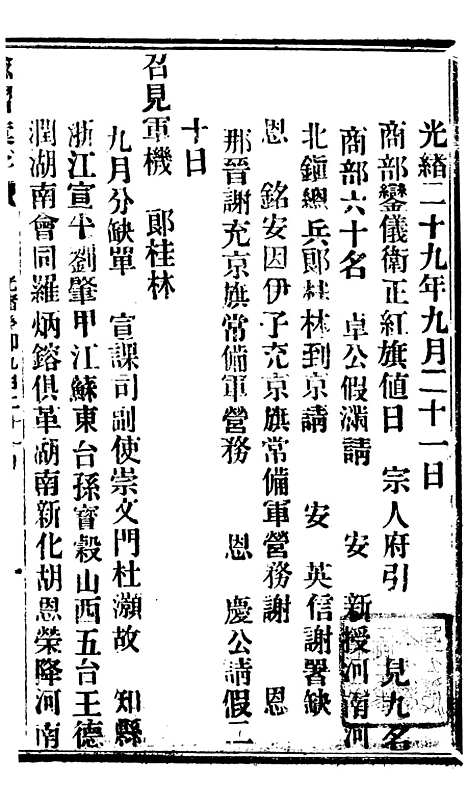 光緒二十九年九月二十一日
商部鑾儀衛正紅旗値日　宗人府引　見九名
商部六十名　卓公假滿請　安　新授河南河
北鎭總兵郞桂林到京請　安　英信謝署缺
恩　銘安因伊子充京旗常備軍營務謝　恩
那晉謝充京旗常備軍營務　恩　慶公請假二
十日
召見軍機　郞桂林
九月分缺單　宣課司副使崇文門杜灝故　知縣
浙江宣平劉肇甲江蘇東台孫寶穀山西五台王德
潤湖南會同羅炳鎔俱革湖南新化胡恩榮降河南